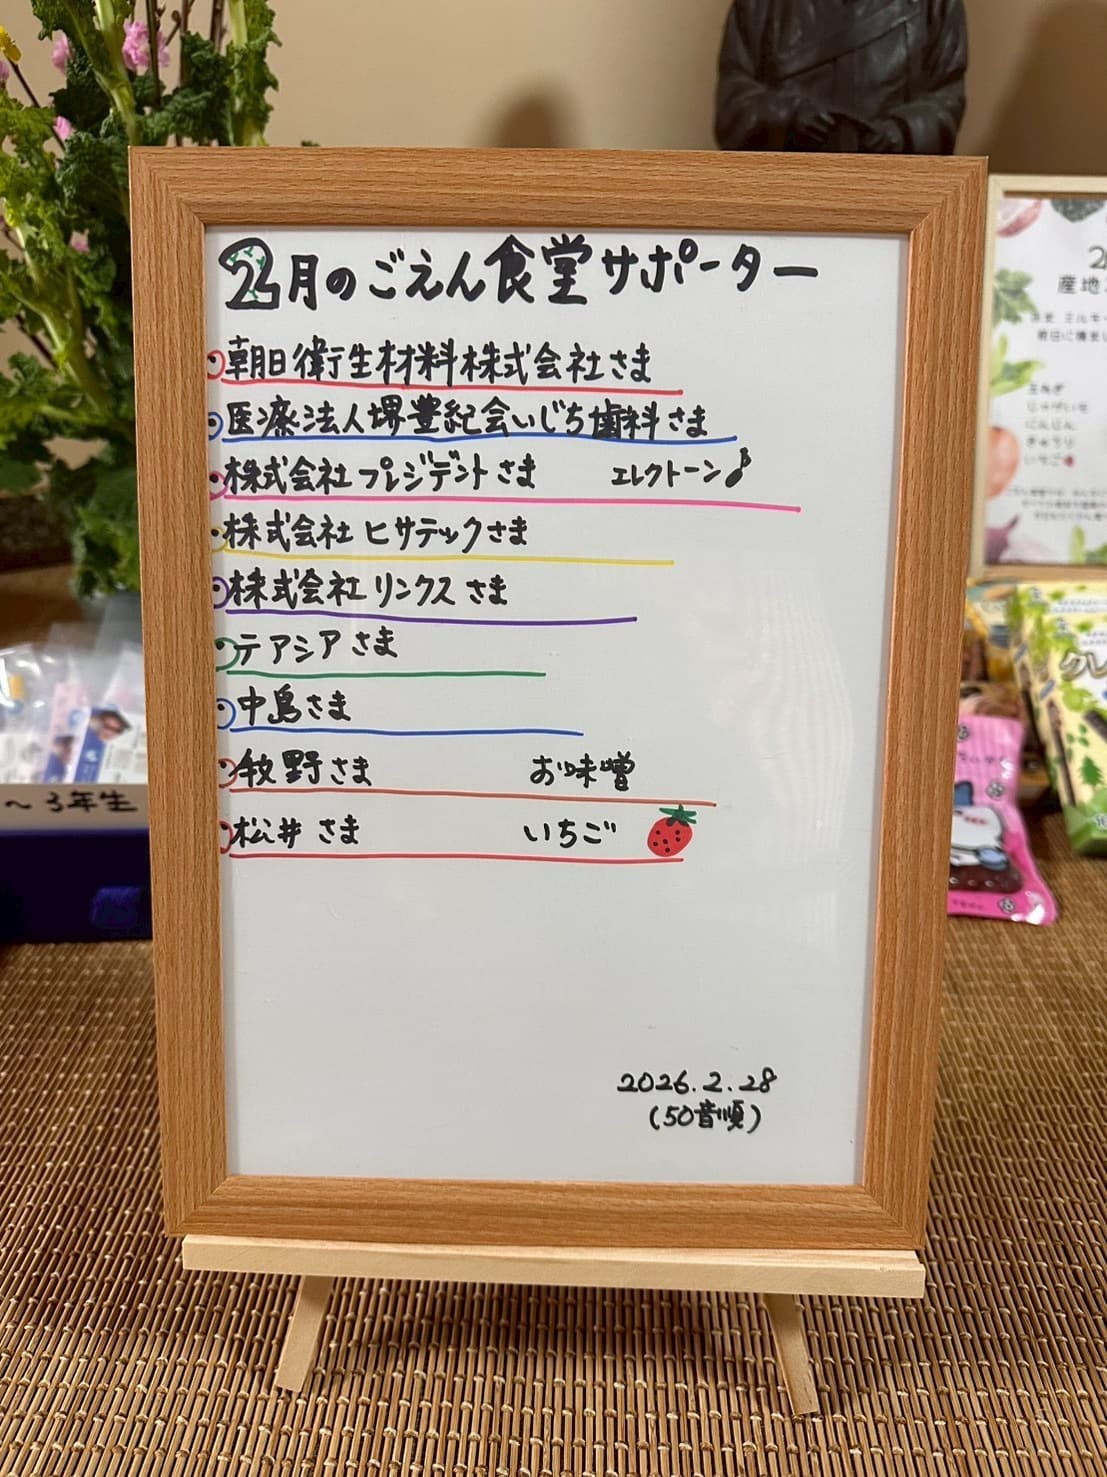 2月のごえん食堂サポーター
朝日衛生材料株式会社さま
医療法人堺豊紀会いじち歯科さま
株式会社プレジデントさま エレクトーン♪
株式会社ヒサテックさま
株式会社リンクスさま
テアシアさま
中島さま
牧野さま お味噌
松井さま いちご
2026.2.28
(50音順)
～3年生
2
産地
玉ねぎ
じゃがいも
にんじん
きゅうり
いちご